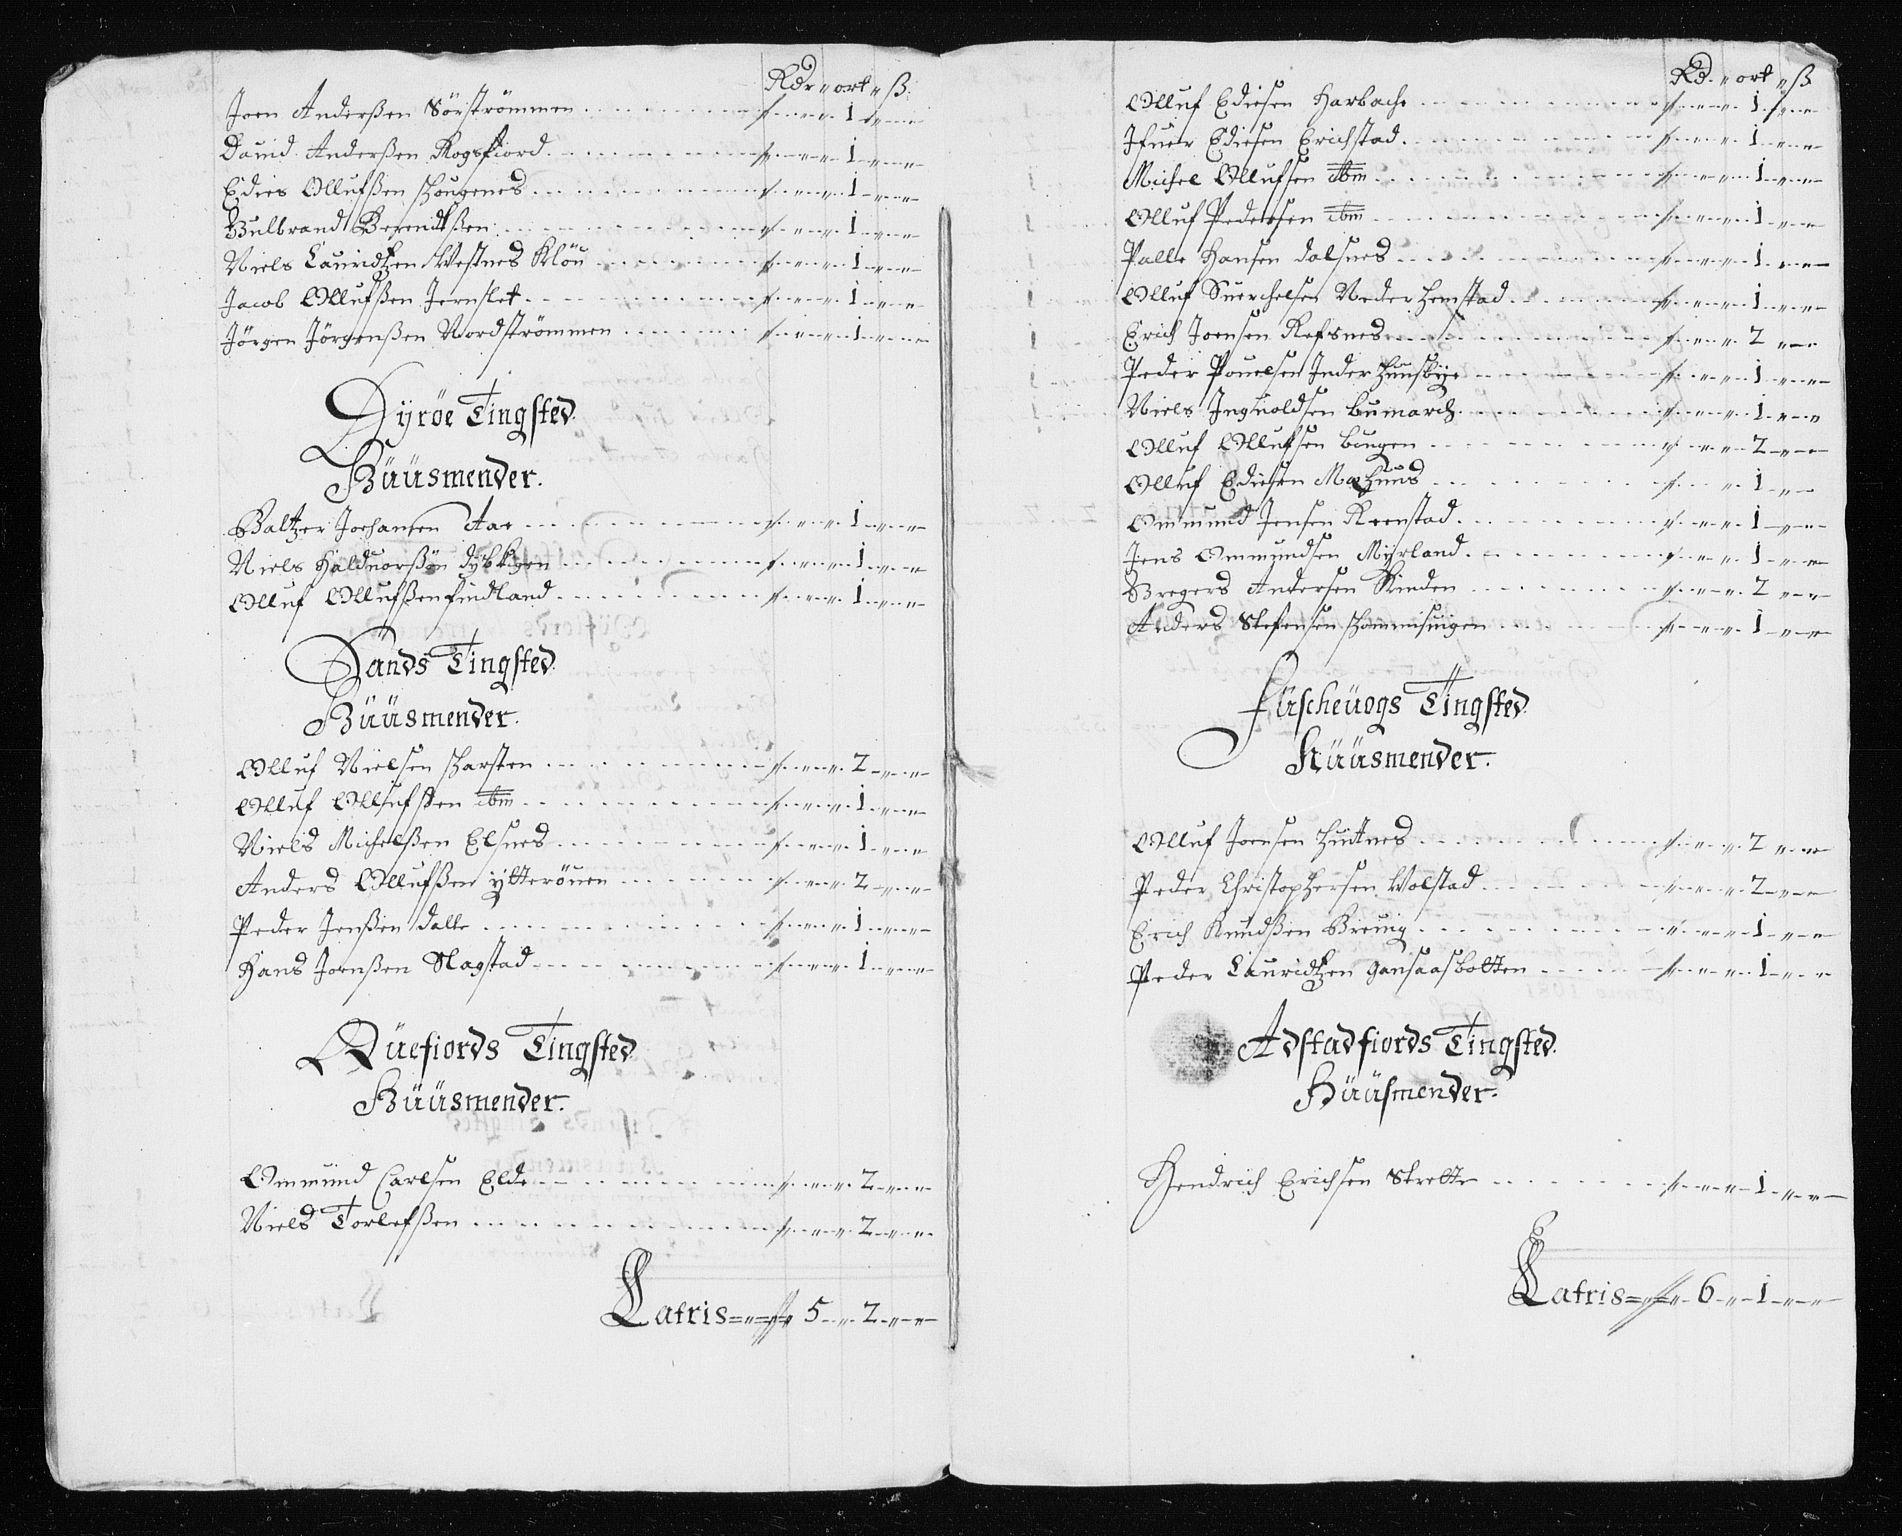 Rdr " ort " ß
Joen Anderßen Sörströmmen 1
Dauid Anderßen Rogsfiord 1
Edies Ollufßen schougenes 1
Gulbrand Berendtßen 1
Niels Lauridtzen Westnes Klöu 1
Jacob Ollufßen Jernslet 1
Jörgen Jörgenßen Nordströmmen 1
Dyröe Tingsted
Hüüsmender.
Baltzer Joehansen Aae 1
Niels Halduorßön 1
Olluf Ollufßen findland 1
Sands Tingsted
Hüüsmender.
Olluf Nielsen scharsten 2
Olluf Ollufsßen ibm 1
Niels Michelßen Elsnes 1
Anders Ollufßen ytteröuen 2
Peder Jenßen dalle 1
Hans Joenßen Slagstad 1
Quefiords Tingsted
Hüüsmender.
Ommund Carlsen Elde 2
Niels Torlefßen 2
Latris 5 " 2
Rd. " ort " ß
Olluf Ediesen Harbache 1
Ifuer Ediesen Erichstad 1
Michel Ollufsen ibm 1
Olluf Pedersen ibm 1
Palle Hansen dalsnes 1
Olluf Suerchelsen Neder hemstad 1
Erich Joensen Refsnes 2
Peder Pouelsen Inderhuusbye 1
Niels Inguoldsen bumarch 1
Olluf Ollufsen bougen 2
Olluf Ediesen Mæhuus 1
Ommund Jensen Reenstad 1
Jens Ommundsen Myrland 1
Gregers Andersen Kinden 2
Anders Stefensen 1
füscheuogs Tingsted
Hüüsmender.
Olluf Joensen 2
Peder Christophersen Wolstad 2
Erich Knudßen Breuig 1
Peder Lauridtzen gansaasbotten 1
Adstadfiords Tingsted.
Hüüsmender.
Hendrich Erichsen Strette 1
Latris 6 " 1